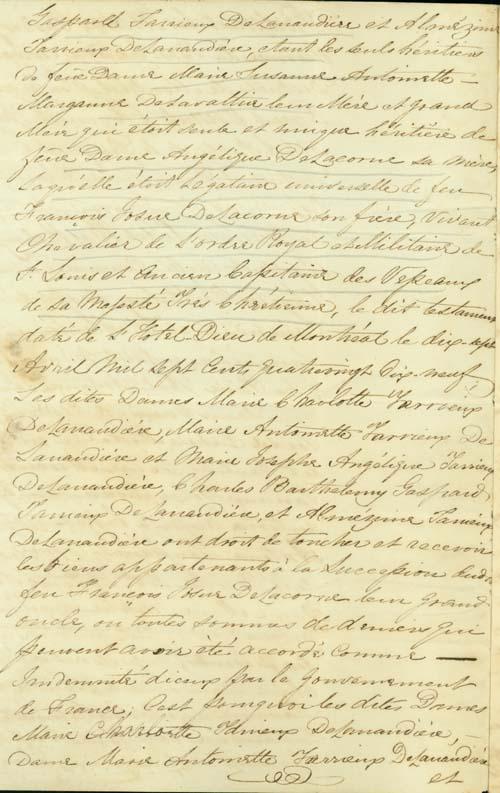 Gaspard Tarrieux DeLanaudière et Almézime
Tarrieux DeLanaudière, étant les seuls héritiers
de feûe Dame Marie Susanne Antoinette –
Marganne DeLavaltrie leur Mère et Grand
Mère qui étoit seule et unique héritière de
feûe Dame Angélique DeLacorne sa mère,
laquelle étoit légataire universelle de feu
François Josué DeLacorne son frère, Vivant
Chevalier de l'ordre Royal et Militaire de
St. Louis et Ancien Capitaine des Vesseaux
de sa Majesté Très Chrétienne, le dit testament
daté de l'Hotel-Dieu de Montréal le dix-sept
Avril Mil Sept Cent quatrevingt Dix-neuf,
Les dites Dames Marie Charlotte Tarrieux
DeLanaudière, Marie Antoinette Tarrieux De
Lanaudière et Marie Josephe Angélique Tarrieux
DeLanaudière, Charles Barthelemy Gaspard
Tarrieux DeLanaudière, et Almézime Tarrieux
DeLanaudière ont droit de toucher et recevoir
les biens appartenants à la Succession dud.
feu François Josué DeLacorne leur Grand
oncle, ou toutes sommes de deniers qui
peuvent avoir été accordé comme —
Indemnité d'iceux par le Gouvernement
de France; C'est pourquoi les dites Dames
Marie Charlotte Tarrieux DeLanaudière, –
Dame Marie Antoinette Tarrieux DeLanaudière
et